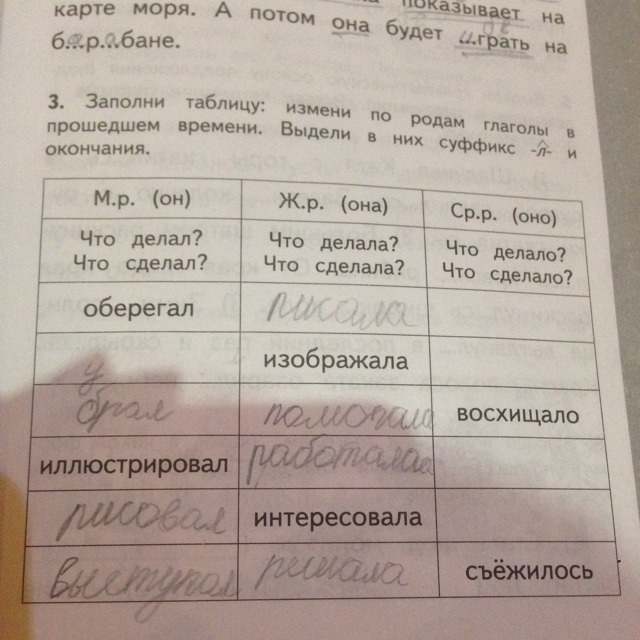 показывает на
карте моря. А потом она будет и.грать на
б...р...бане.
3. Заполни таблицу: измени по родам глаголы в
прошедшем времени. Выдели в них суффикс -л- и
окончания.
М.р. (он) Ж.р. (она) Ср.р. (оно)
Что делал? Что делала? Что делало?
Что сделал? Что сделала? Что сделало?
оберегал писала
изображала
брал помогала восхищало
иллюстрировал работала
рисовал интересовала
выступал решала съёжилось